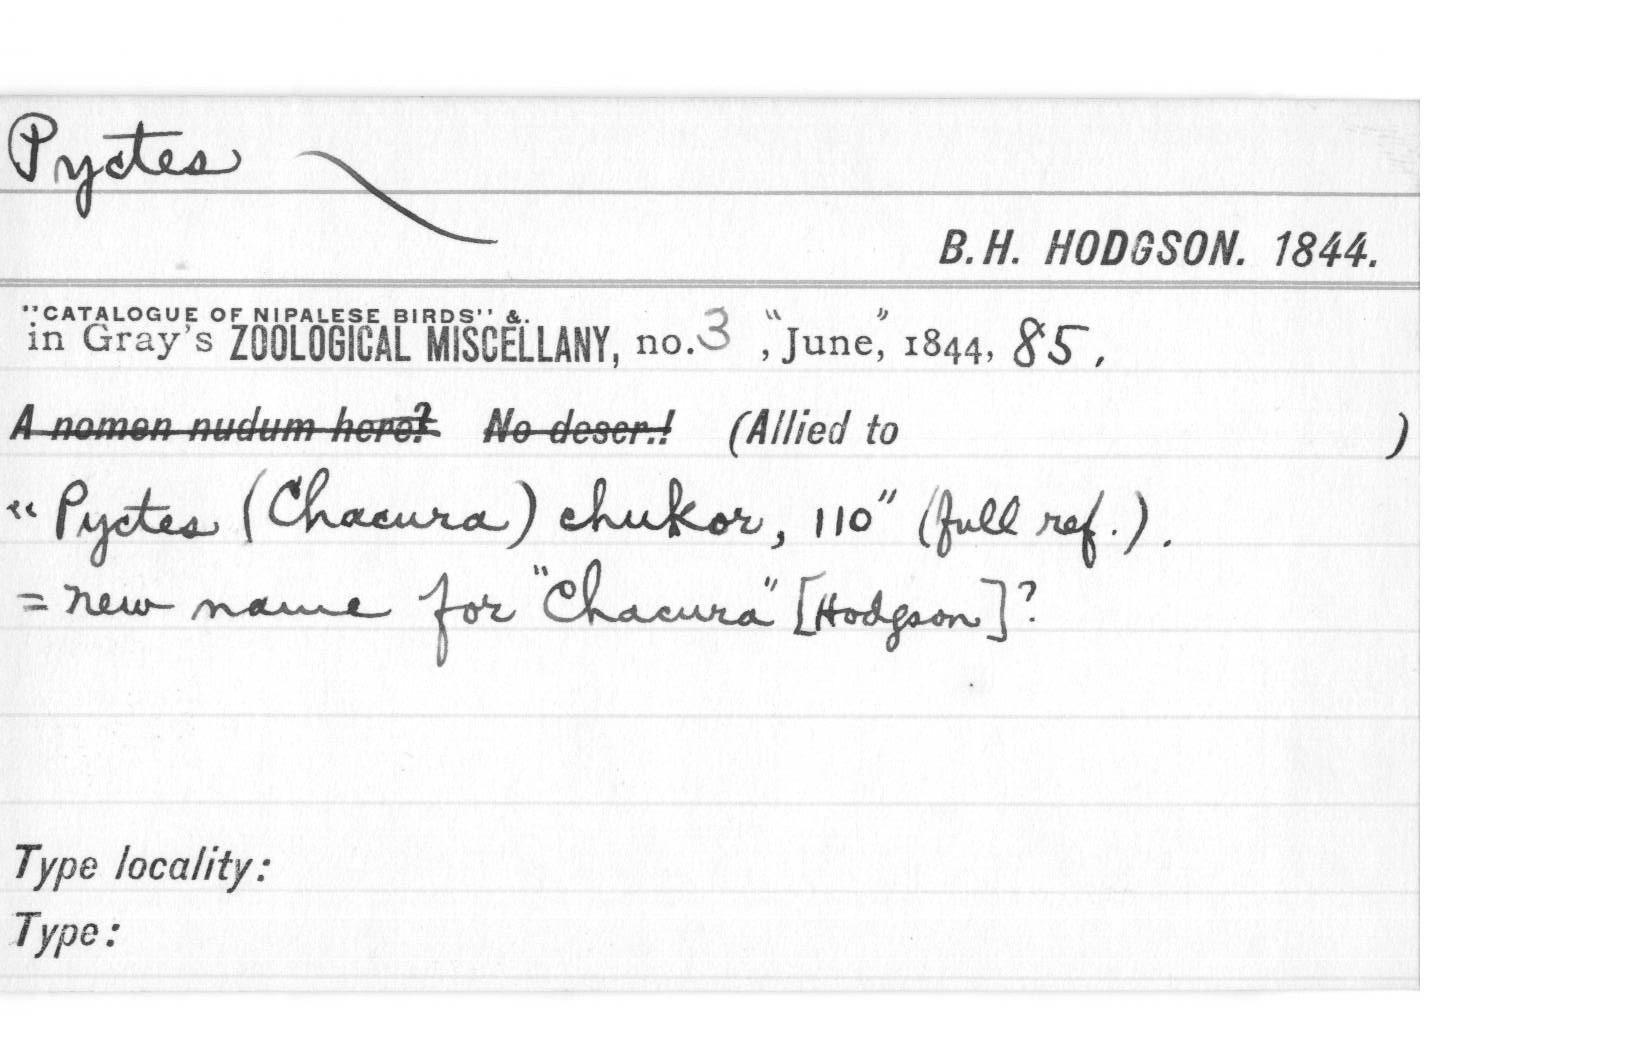 Pyctes
B.H. HODGSON. 1844.
"CATALOGUE OF NIPALESE BIRDS" &.
in Gray's ZOOLOGICAL MISCELLANY, no.3 , "June," 1844, 85.
A nomen nudum here? No descr.! (Allied to )
"Pyctes (Chacura) chukor, 110" (full ref.).
= new name for "Chacura" [Hodgson]?
Type locality:
Type: